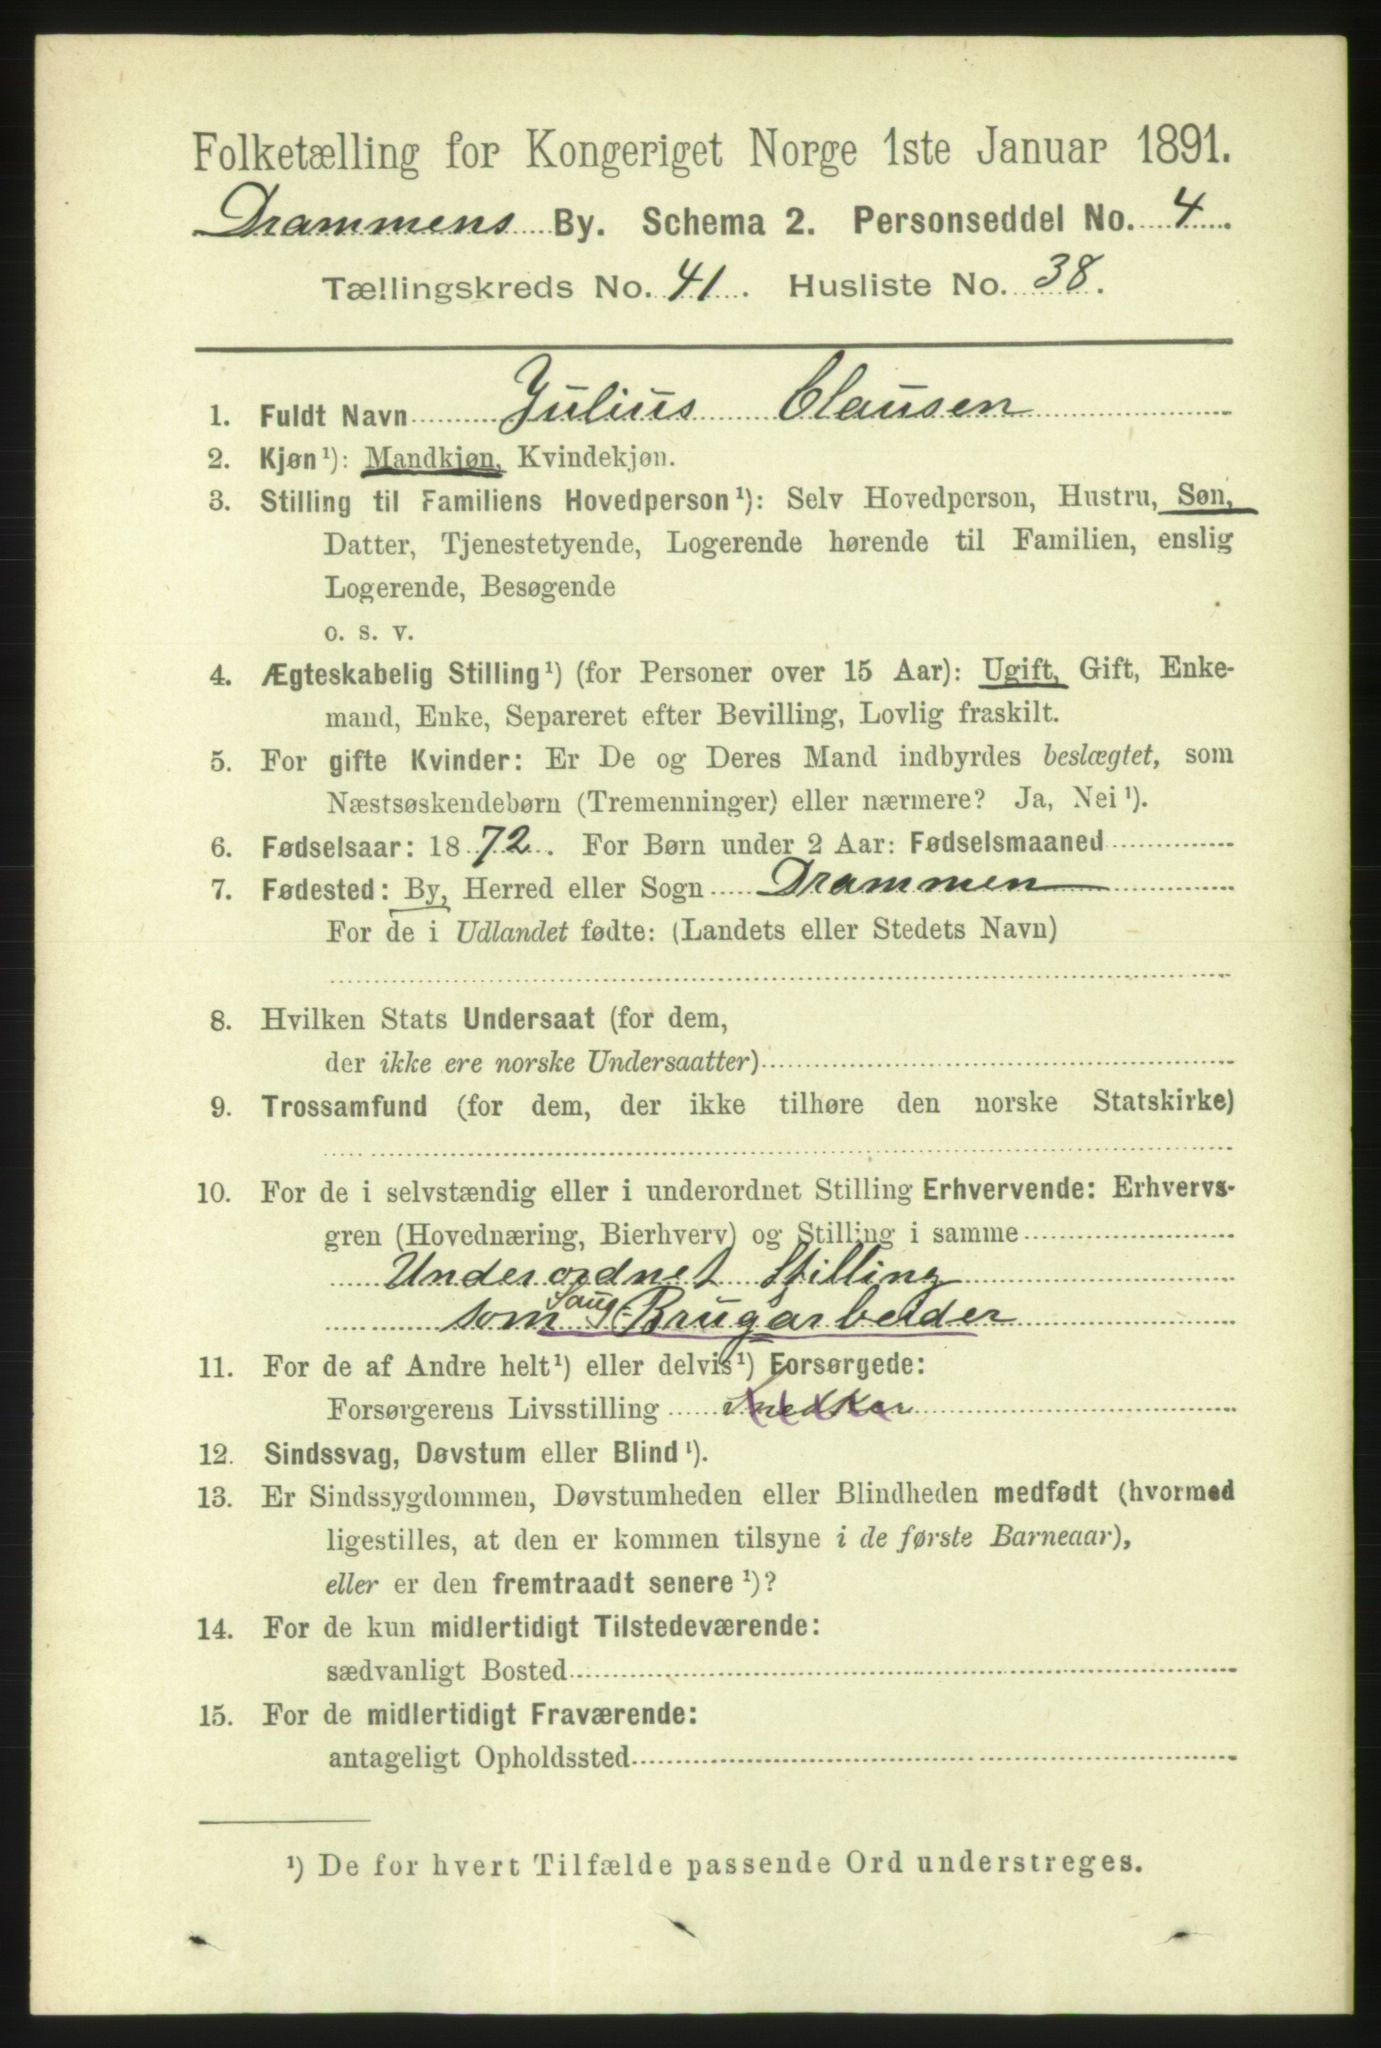 Folketælling for Kongeriget Norge 1ste Januar 1891.
Drammens By. Schema 2. Personseddel No. 4.
Tællingskreds No. 41. Husliste No. 38.
1. Fuldt Navn Julius Clausen
2. Kjøn¹): Mandkjøn, Kvindekjøn.
3. Stilling til Familiens Hovedperson¹): Selv Hovedperson, Hustru, Søn,
Datter, Tjenestetyende, Logerende hørende til Familien, enslig
Logerende, Besøgende
o. s. v.
4. Ægteskabelig Stilling¹) (for Personer over 15 Aar): Ugift, Gift, Enke-
mand, Enke, Separeret efter Bevilling, Lovlig fraskilt.
5. For gifte Kvinder: Er De og Deres Mand indbyrdes beslægtet, som
Næstsøskendebørn (Tremenninger) eller nærmere? Ja, Nei¹).
6. Fødselsaar: 1872. For Børn under 2 Aar: Fødselsmaaned
7. Fødested: By, Herred eller Sogn Drammen
For de i Udlandet fødte: (Landets eller Stedets Navn)
8. Hvilken Stats Undersaat (for dem,
der ikke ere norske Undersaatter)
9. Trossamfund (for dem, der ikke tilhøre den norske Statskirke)
10. For de i selvstændig eller i underordnet Stilling Erhvervende: Erhvervs-
gren (Hovednæring, Bierhverv) og Stilling i samme
Underordnet Stilling
som Saug-Brugarbeider
11. For de af Andre helt¹) eller delvis¹) Forsørgede:
Forsørgerens Livsstilling Snedker
12. Sindssvag, Døvstum eller Blind¹).
13. Er Sindssygdommen, Døvstumheden eller Blindheden medfødt (hvormed
ligestilles, at den er kommen tilsyne i de første Barneaar),
eller er den fremtraadt senere¹)?
14. For de kun midlertidigt Tilstedeværende:
sædvanligt Bosted
15. For de midlertidigt Fraværende:
antageligt Opholdssted
¹) De for hvert Tilfælde passende Ord understreges.